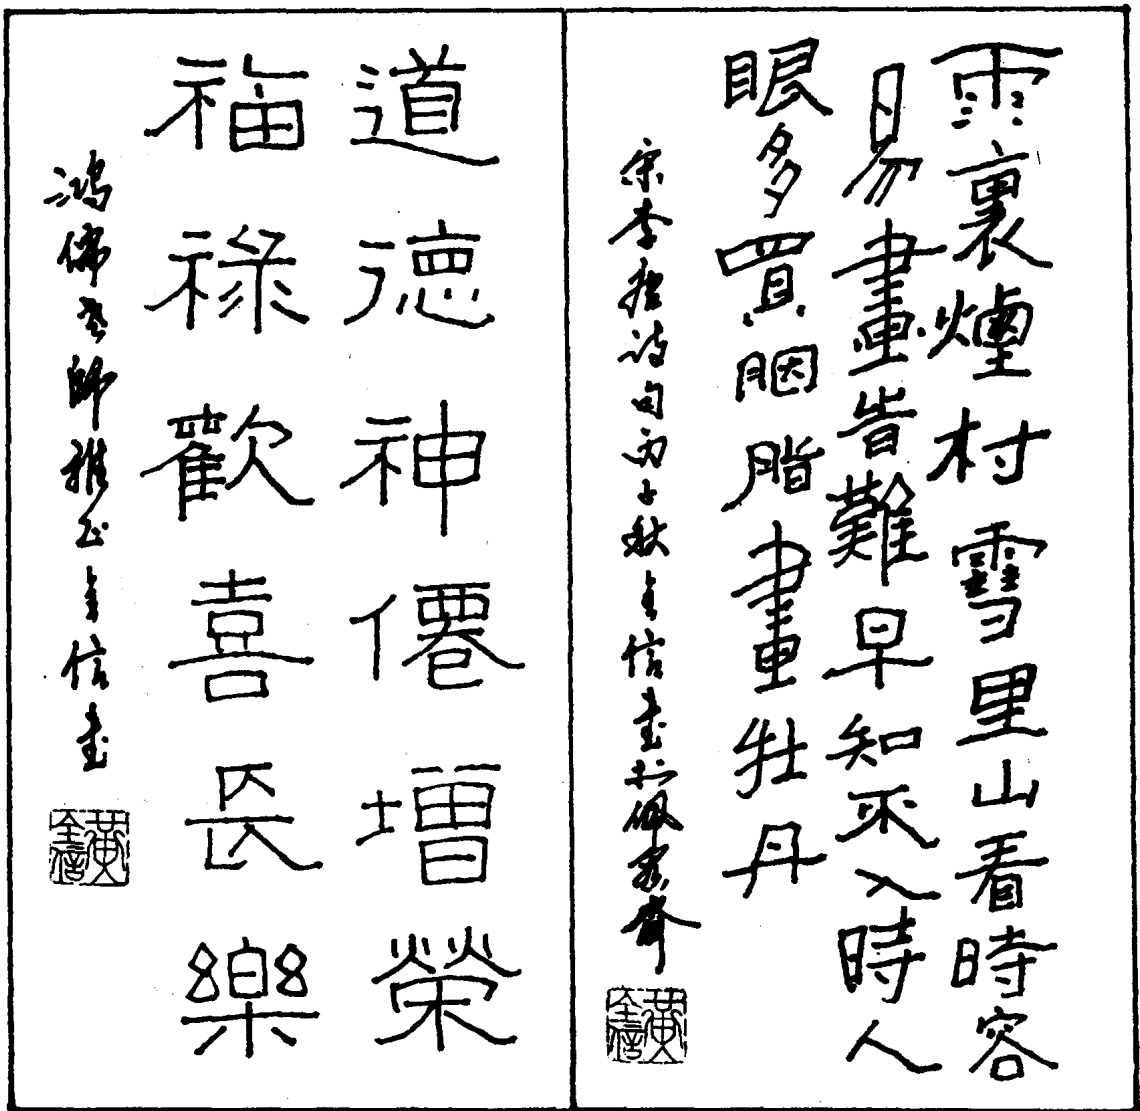 雨裏煙村雪里山看時容
易畫皆難早知不入時人
眼多買胭脂畫牡丹
宋李唐詩句丙子秋全信書於佩齋
黃全信
道德神僊增榮
福祿歡喜長樂
鴻儒老師雅正全信書
黃全信